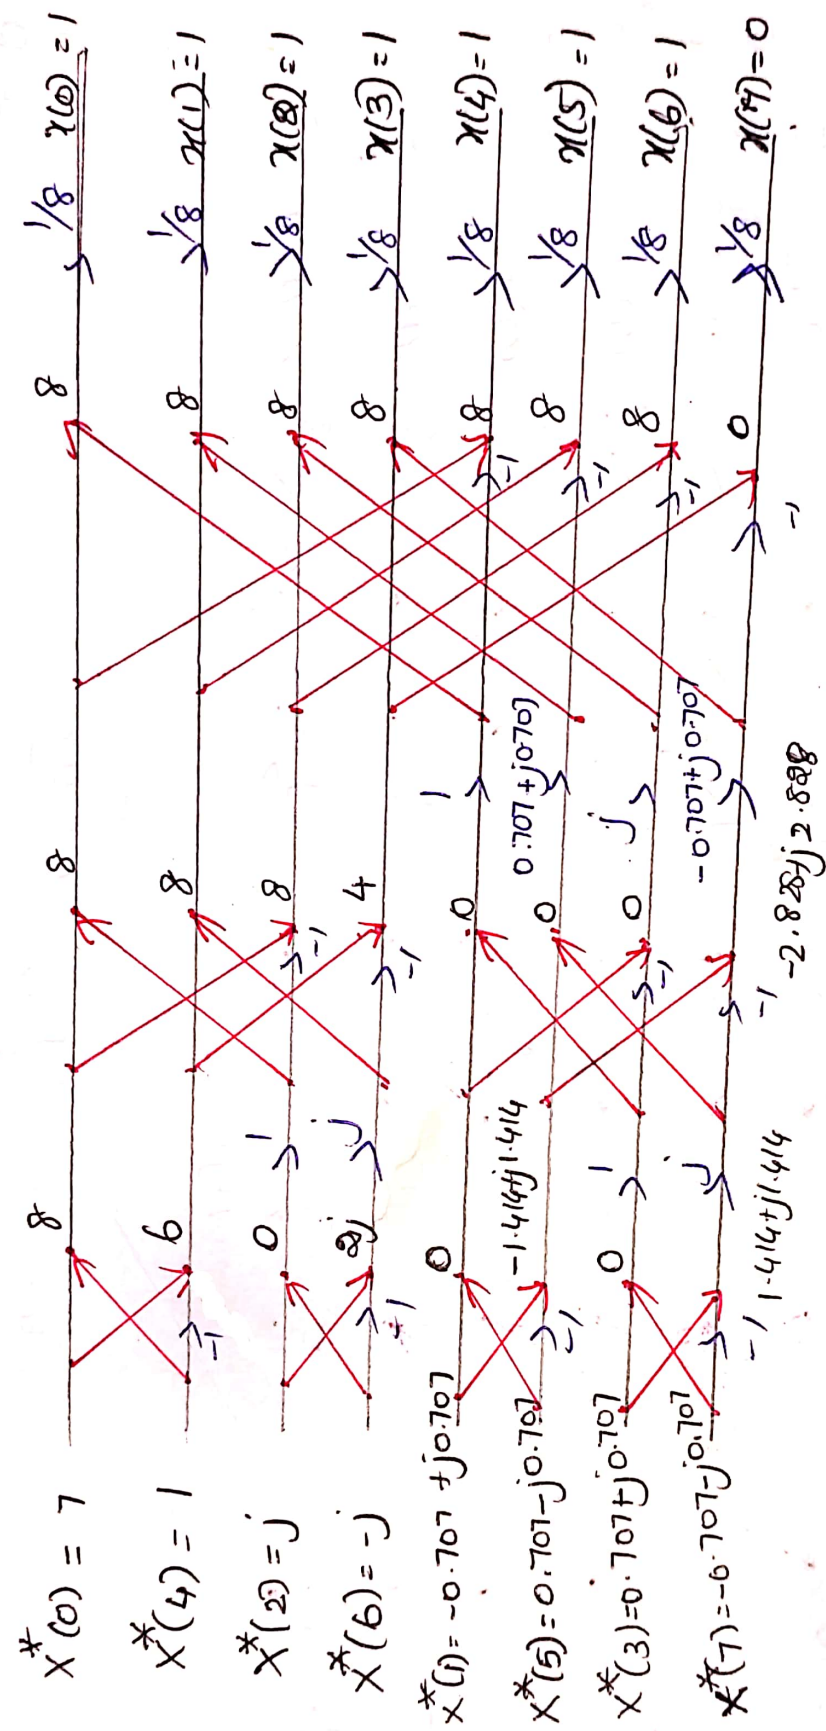 X*(0) = 7 8 8 8 1/8 x(0) = 1
X*(4) = 1 -1 6 8 8 1/8 x(1) = 1
X*(2) = j 0 1 -1 8 8 1/8 x(2) = 1
X*(6) = -j -1 2j j -1 4 8 1/8 x(3) = 1
X*(1) = -0.707 +j0.707 0 0 1 -1 8 1/8 x(4) = 1
X*(5) = 0.707-j0.707 -1 -1.414+j1.414 0 0.707+j0.707 -1 8 1/8 x(5) = 1
X*(3) = 0.707+j0.707 0 1 -1 0 j -1 8 1/8 x(6) = 1
X*(7) = -0.707-j0.707 -1 1.414+j1.414 j -1 -2.828+j2.828 -0.707+j0.707 -1 0 1/8 x(7) = 0